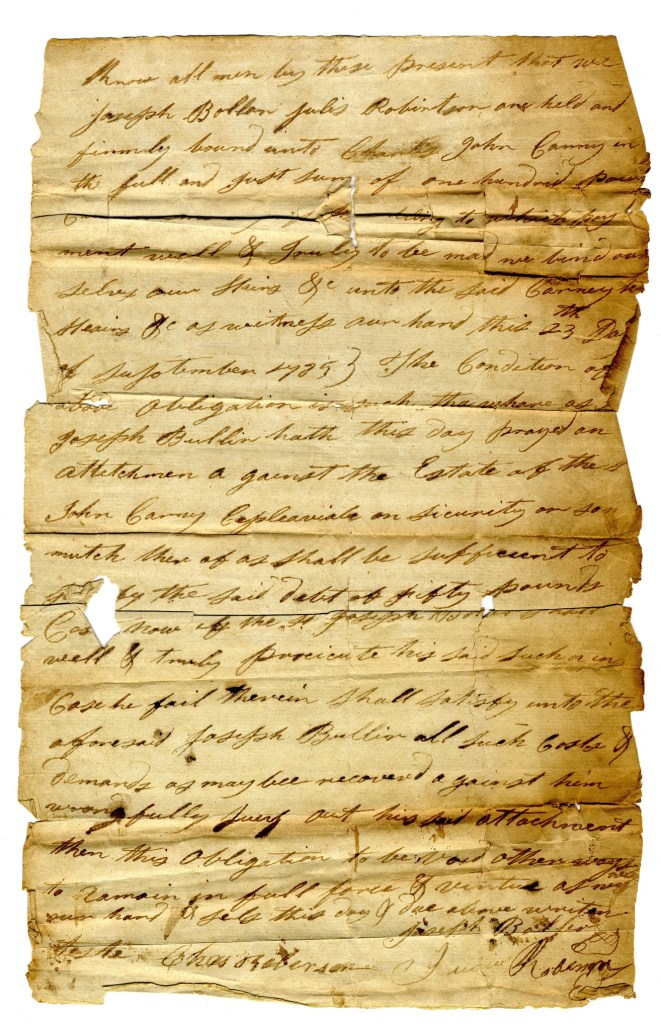 Know all men by these present that we
Joseph Bollan Julis Robinson are held and
firmly bound unto John Carney in
the full and just sum of one hundred
to which pay
ment well & Truly to be mad we bind our
selves our Heirs &c unto the said Carney
Heairs &c as witness our hand this 23th Day
of Suptember 1785 } The Condition of
above Obligation is such tha whare as
Joseph Bullin hath this day prayed an
attetchmen a gainst the Estate of the sd
John Carney Repleaviale on sicurity or soo
mutch ther of as shall be sufficient to
the said debt of fifty pounds
Cos Now if the sd Joseph
well & truly Procicute his said such or in
Case he fail therein shall satisfy unto the
aforesaid Joseph Bullin all such Costs &
demands as maybee recoverd a gainst him
wrongfully out his said attachment
then this Obligation to be Void otherways
to Remain in full force & virtue as
our hand & sels this day & above writen
Joseph
Teste Chas